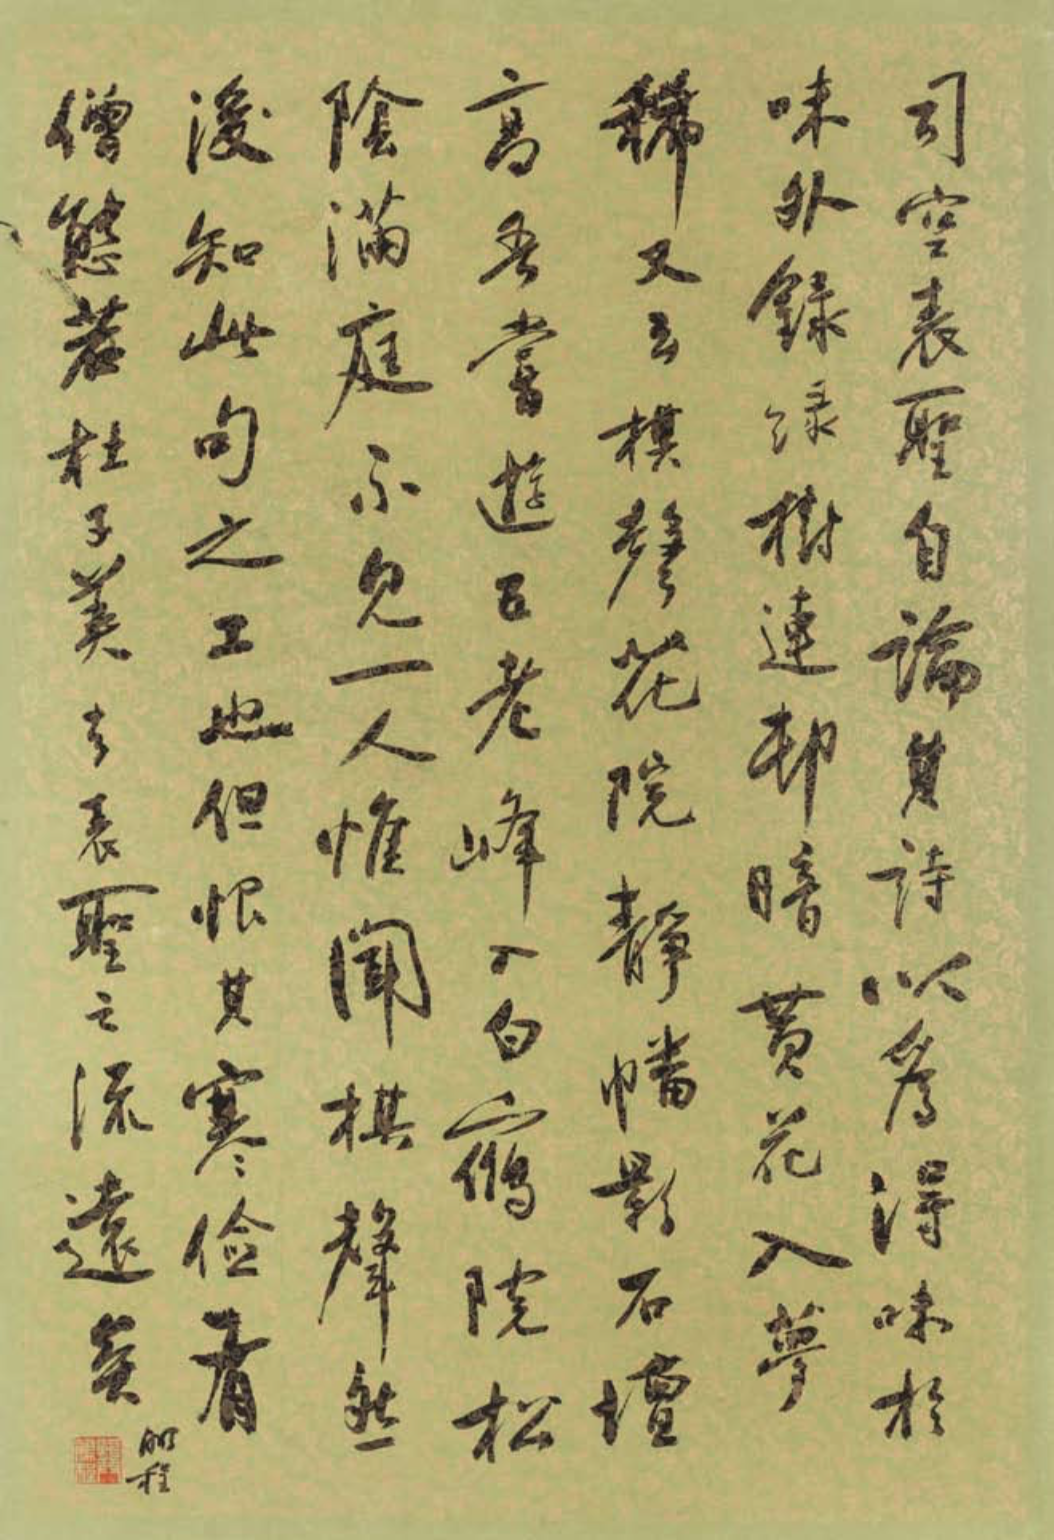 司空表聖自論其詩以為得味於
味外錄綠樹連邨暗黃花入夢
稀又云棋聲花院靜幡影石壇
高吾嘗遊五老峰入白鶴院松
陰滿庭不見一人惟聞棋聲然
後知此句之工也但恨其寒儉有
僧態若杜子美去表聖之流遠矣